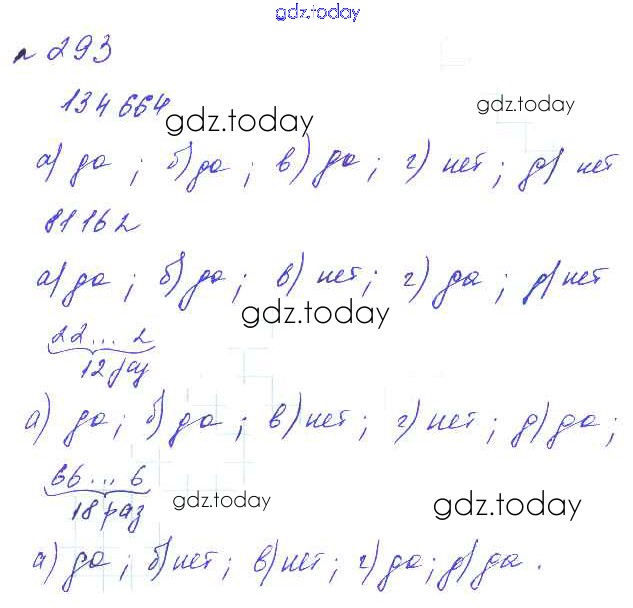 gdz.today
№ 293
134 664
gdz.today gdz.today
а) да ; б) да ; в) да ; г) нет ; д) нет
81162
а) да ; б) да ; в) нет ; г) да ; д) нет
gdz.today
22... 2
12 раз
а) да ; б) да ; в) нет ; г) нет ; д) да ;
66 ... 6
18 раз
gdz.today gdz.today
а) да ; б) нет ; в) нет ; г) да ; д) да .